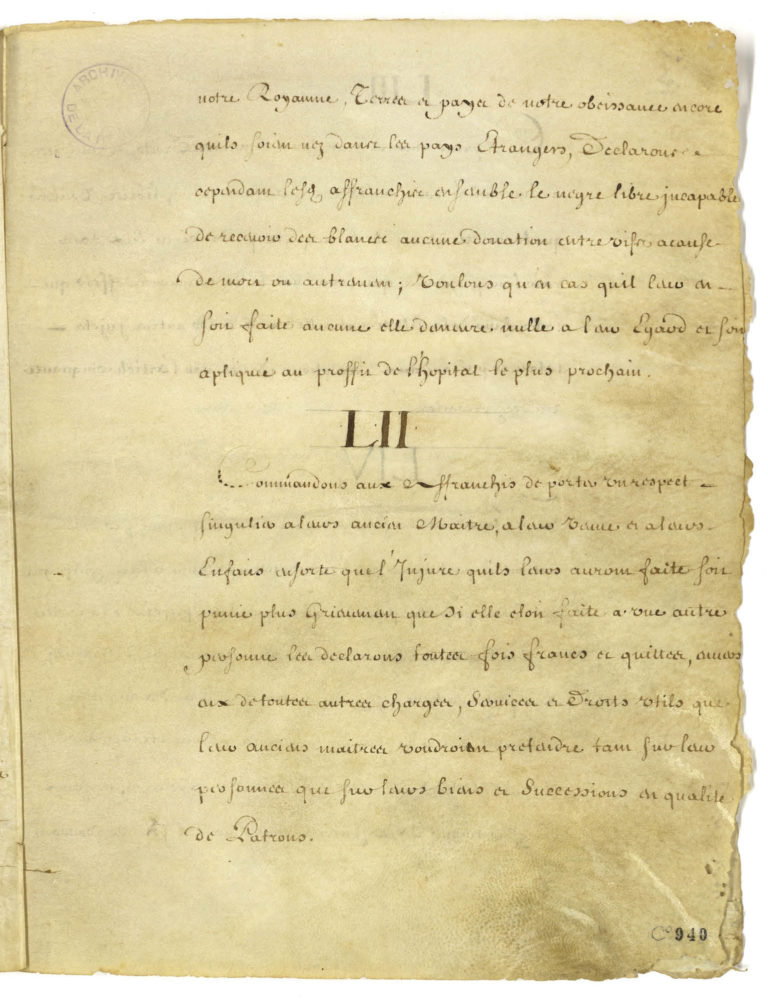 ARCHIV
DE LA
notre Royaume, Terres et payes de notre obeissance encore
quils soient nez dans les pays Etrangers, Declarons
cependant lesq. affranchis ensemble le negre libre jncapable
de recevoir des blancs aucune donation entre vifs a cause
de mort ou autrement; Voulons qu'en cas quil leur en
soit faite aucune elle demeure nulle a leur Egard et soit
apliquée au proffit de l'hopital le plus prochain.
LII
Commandons aux Affranchis de porter un respect
singulier a leurs ancien Maitre, a leur Veuve et a leurs
Enfans ensorte que l'Injure quils leurs auront faite soit
punie plus Grievement que si elle etoit faite a une autre
personne les declarons toutes fois francs et quittes, envers
eux de toutes autres charges, Services et Droits utils que
leur anciens maitres voudroient pretendre tant sur leur
personnes que sur leurs biens et Successions en qualité
de Patrons.
940